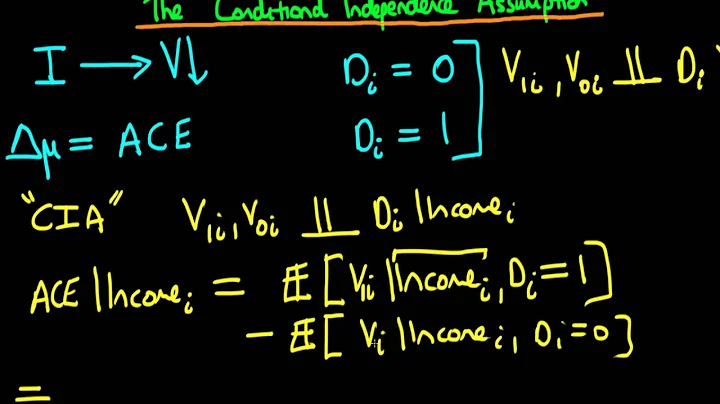 The Conditional Independence Assumption
I → V↓
Dᵢ = 0
V₁ᵢ, V₀ᵢ ⫫ Dᵢ
Δμ = ACE
Dᵢ = 1
"CIA" V₁ᵢ, V₀ᵢ ⫫ Dᵢ | Incomeᵢ
ACE | Incomeᵢ = 𝔼[V₁ᵢ | Incomeᵢ, Dᵢ = 1]
− 𝔼[Vᵢ | Incomeᵢ, Dᵢ = 0]
=